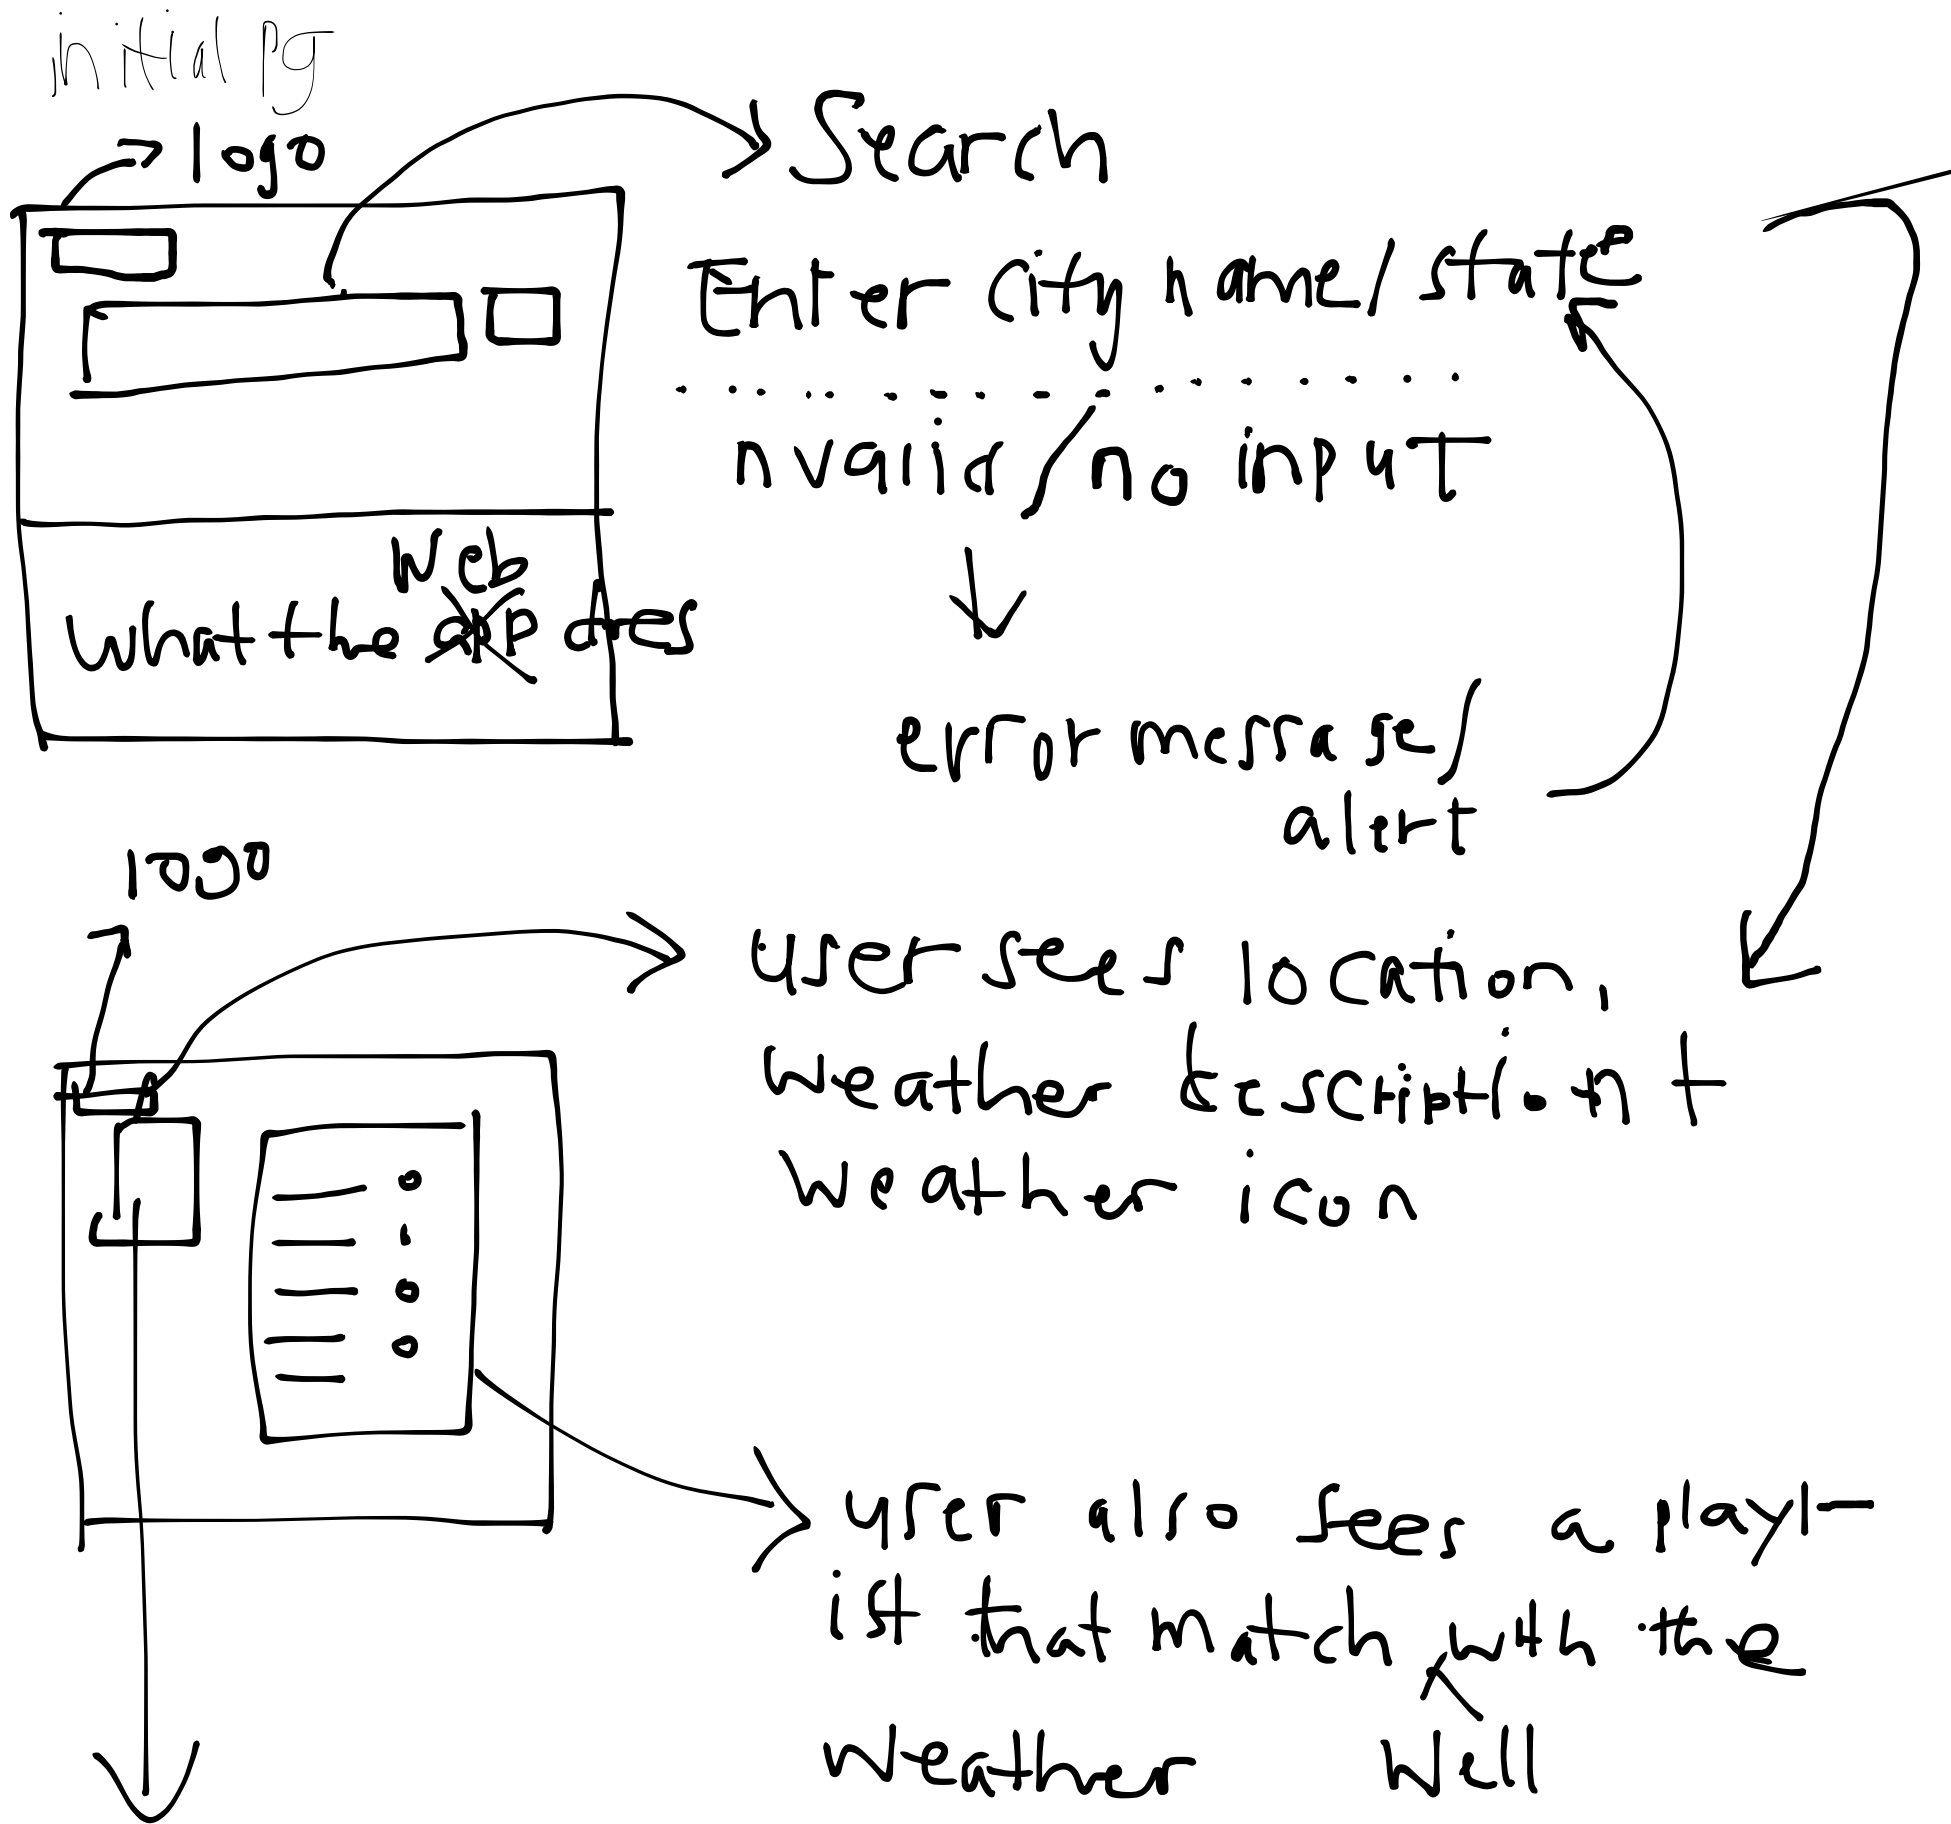 initial pg
logo
Search
Enter city name/state
nvalid/no input
web
what the app does
error message/
alert
logo
user sees location,
weather description +
weather icon
user also sees a play-
list that match with the
weather well